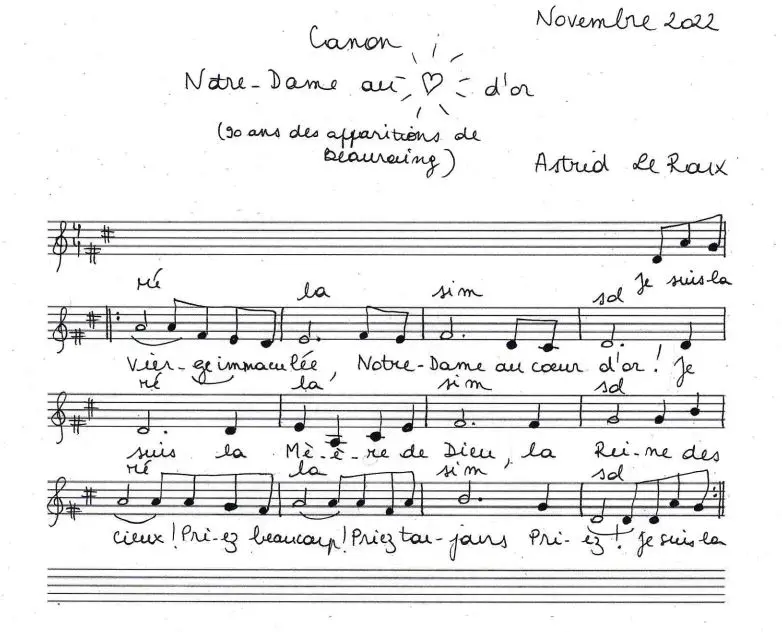 Novembre 2022
Canon
Notre-Dame au ♡ d'or
(90 ans des apparitions de
Beauraing)
Astrid Le Roux
4
4
Je suis la
ré la sim sol
Vier-ge immaculée, Notre-Dame au cœur d'or! Je
ré la sim sol
suis la Mè-è-re de Dieu, la Rei-ne des
ré la sim sol
cieux! Pri-ez beaucoup! Priez tou-jours Pri-ez! Je suis la